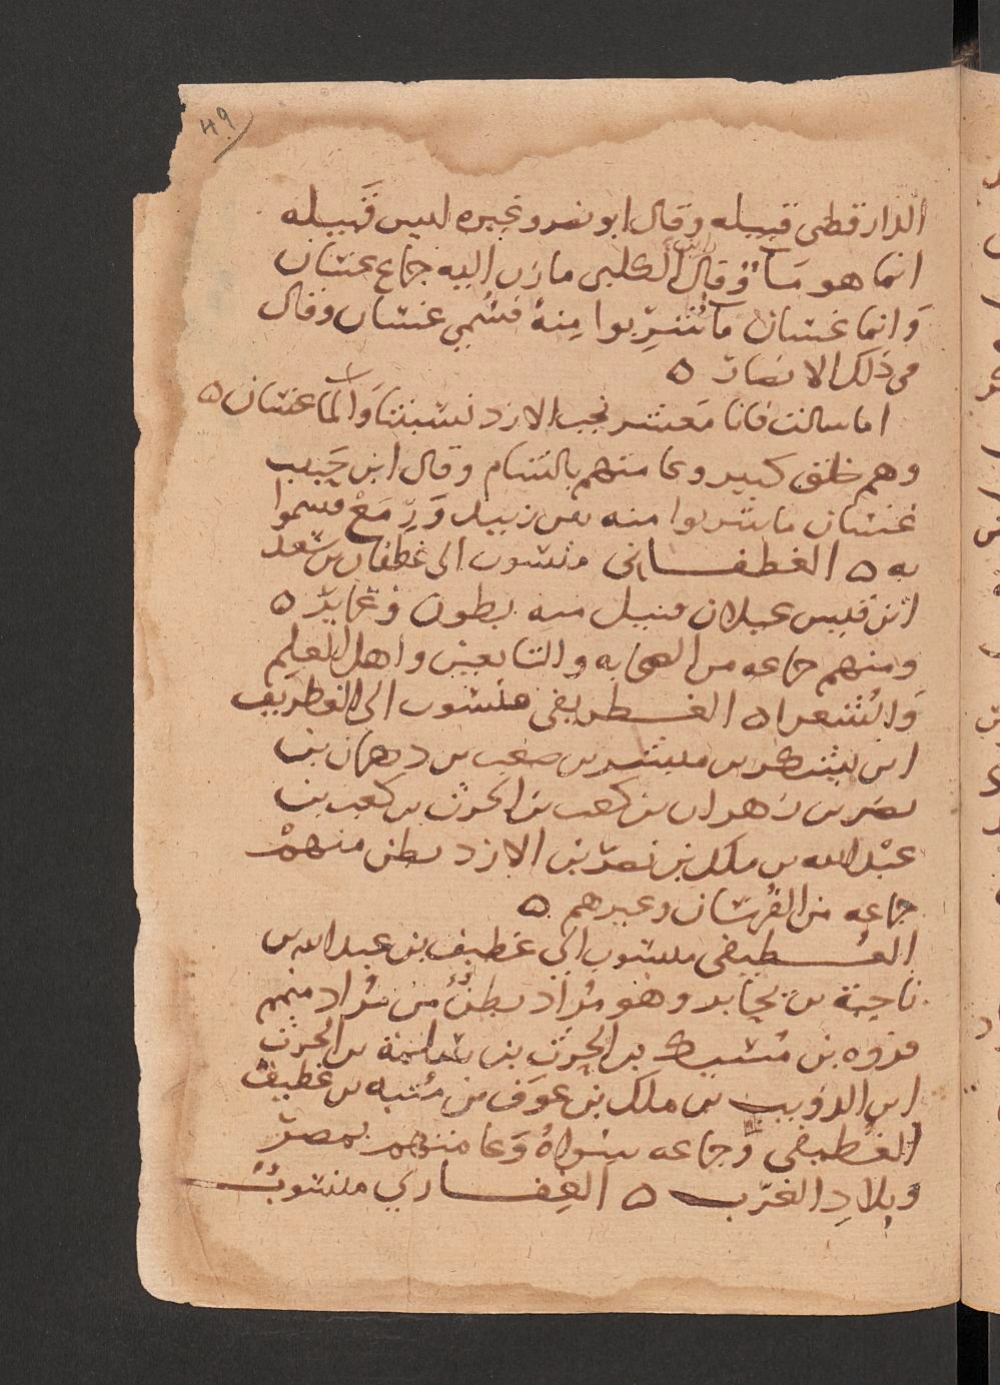 ٤٩
الدارقطى قبيله وقال ابو نصر وغيره ليس قبيله
انما هو ماء وقال ابن الكلبى مازن اليه جماع غسان
وانما غسان ماء شربوا منه فسمي غسان وقال
فى ذلك الانصار ٥
اما سالت فانا معشر نجب الازد نسبتنا والما غسان ٥
وهم خلق كبير وعامتهم بالشام وقال ابن حبيب
غسان ما شربوا منه بين زبيد ورمع فسموا
به ٥ الغطفانى منسوب الى غطفان بن سعد
ابن قيس عيلان قبيل منه بطون وعماير ٥
ومنهم جماعه من الصحابه والتابعين واهل العلم
والشعرا ٥ الغطريفى منسوب الى الغطريف
ابن يشكر بن مبشر بن صعب بن دهمان بن
نصر بن زهران بن كعب بن الحرث بن كعب بن
عبد الله بن ملك بن نصر بن الازد بطن منهم
جماعه من الفرسان وغيرهم ٥
الغطيفى منسوب الى غطيف بن عبد الله بن
ناجية بن يحابر وهو مراد بطن من مراد منهم
فروه بن مسيك بن الحرث بن سلمة بن الحرث
ابن الذويب بن ملك بن عوف بن منبه بن غطيف
الغطيفى وجماعه سواه وعامتهم بمصر
وبلاد الغرب ٥ الغفاري منسوب